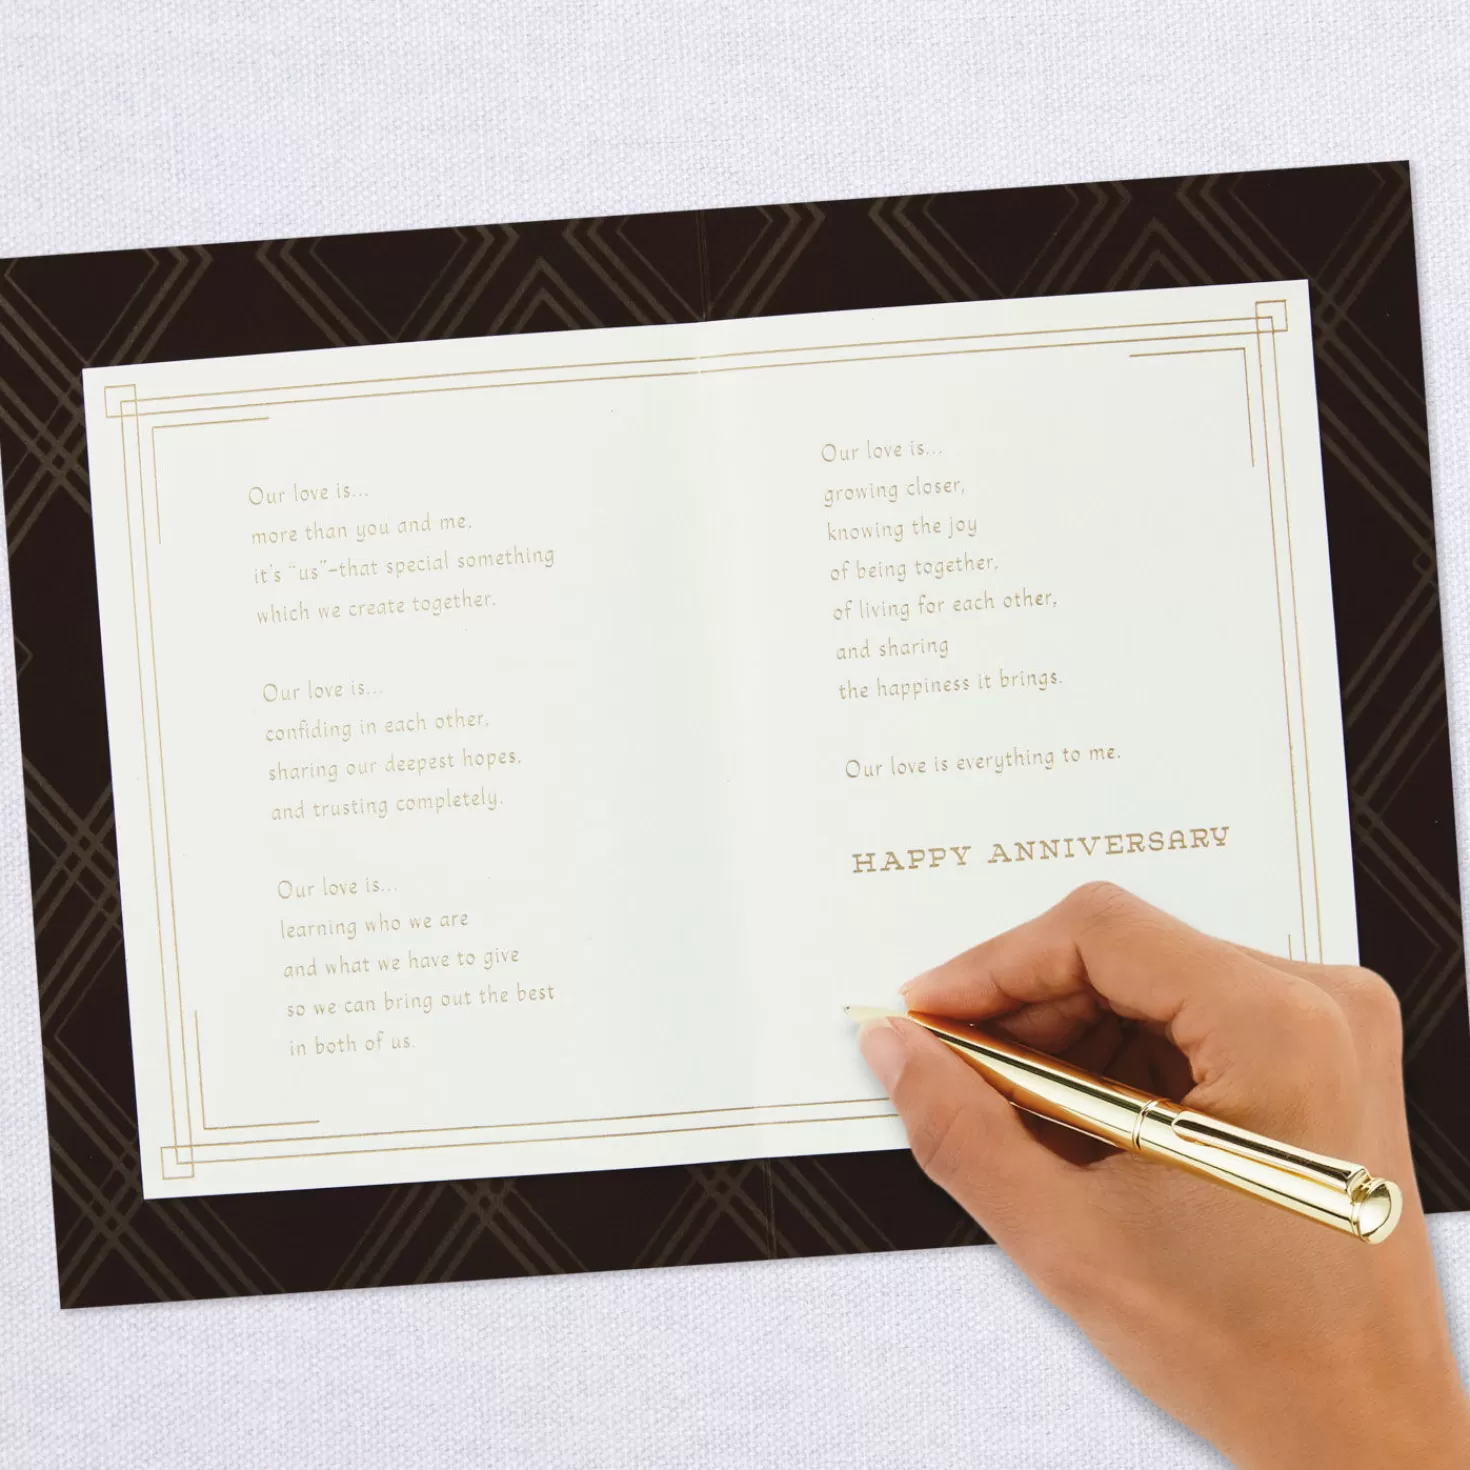 Our love is...
more than you and me,
it's "us"–that special something
which we create together.
Our love is...
confiding in each other,
sharing our deepest hopes,
and trusting completely.
Our love is...
learning who we are
and what we have to give
so we can bring out the best
in both of us.
Our love is...
growing closer,
knowing the joy
of being together,
of living for each other,
and sharing
the happiness it brings.
Our love is everything to me.
HAPPY ANNIVERSARY